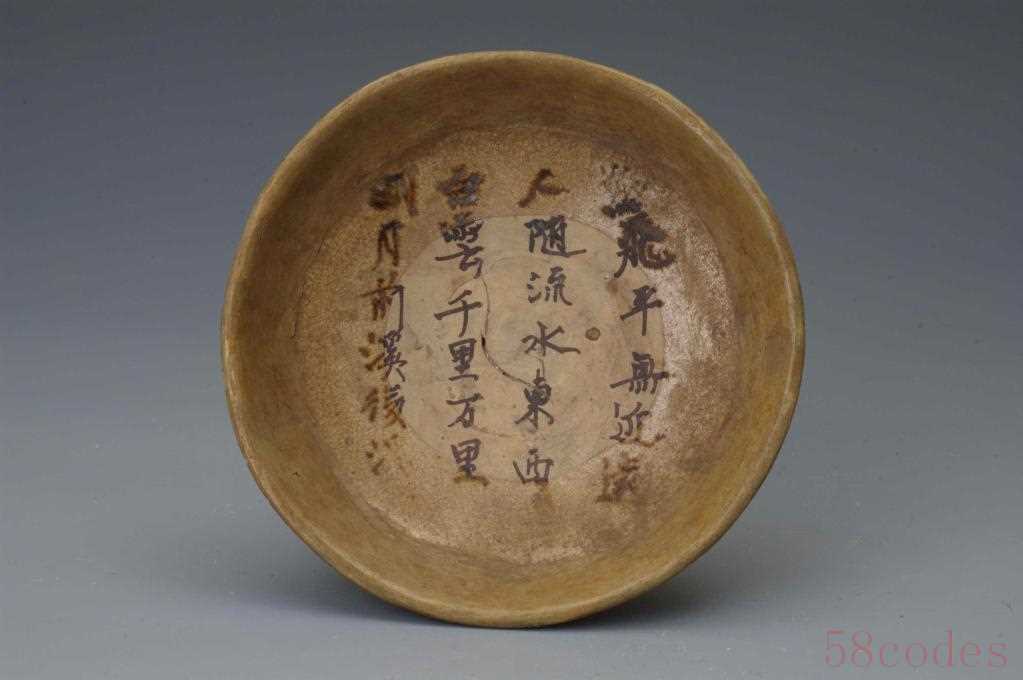 鳥飛平無近遠
人随流水東西
白雲千里万里
明月前溪後溪
58codes